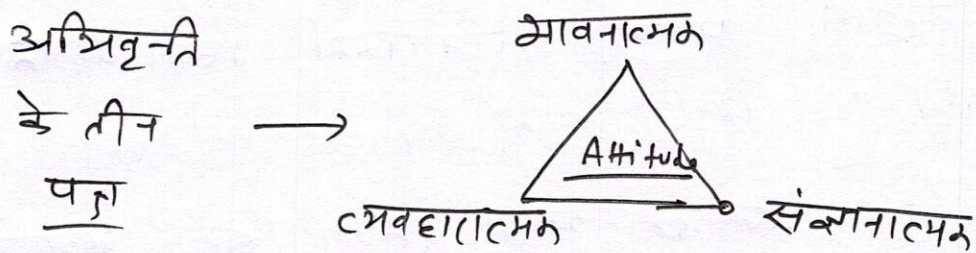 अभिवृत्ति
के तीन
पक्ष
→
भावनात्मक
Attitude
व्यवहारात्मक
संज्ञानात्मक